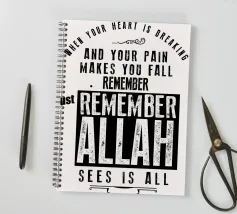 WHEN YOUR HEART IS BREAKING
AND YOUR PAIN
MAKES YOU FALL
REMEMBER
ust REMEMBER
ALLAH
SEES IS ALL